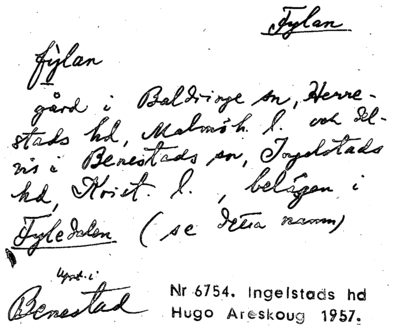 Fylan
fylan
gård i Baldringe sn, Herre-
stads hd, Malmöh. l. och del-
vis i Benestads sn, Ingelstads
hd, Krist. l., belägen i
Fyledalen (se detta namn)
Uppt. i
Benestad
Nr 6754. Ingelstads hd
Hugo Areskoug 1957.